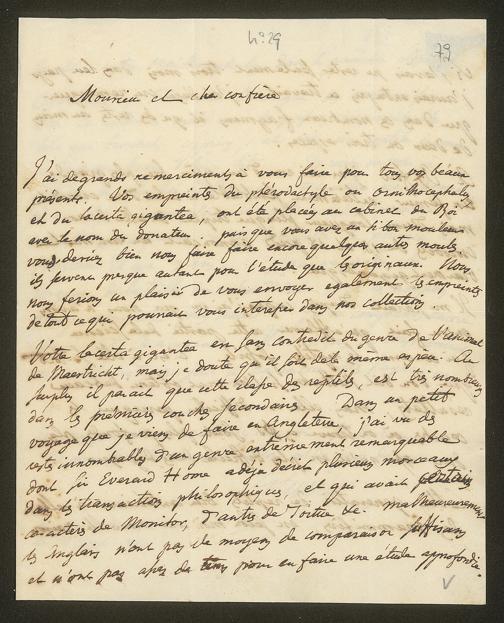 n.° 29
79
Monsieur et cher confrère
J'ai de grands remerciments à vous faire pour tous vos beaux
présents. Vos empreintes du ptérodactyle ou Ornithocephale,
et du lacerta gigantea, ont été placées au cabinet du Roi
avec le nom du donateur. puisque vous avez un si bon mouleur
vous devriez bien nous faire faire encore quelques autres moules
ils servent presque autant pour l'étude que les originaux. Nous
nous ferions un plaisir de vous envoyer egalement les empreintes
de tout ce qui pourrait vous interesser dans nos collections
Votre lacerta gigantea est sans contredit du genre de l'animal
de Maestricht, mais je doute qu'il soit de la même espèce. Au
surplus il parait que cette classe des reptiles, est très nombreuse
dans les premieres couches secondaires. Dans un petit
voyage que je viens de faire en Angleterre, j'ai vu des
restes innombrables d'un genre extrêmement remarquable
dont Sir Everard Home a déja décrit plusieurs morceaux
dans les transactions philosophiques, et qui avait
caractères de Monitor, d'autres de Tortue &c. malheureusement
les anglais n'ont pas de moyens de comparaison suffisans
et n'ont pas assez de tems pour en faire une étude approfondie.